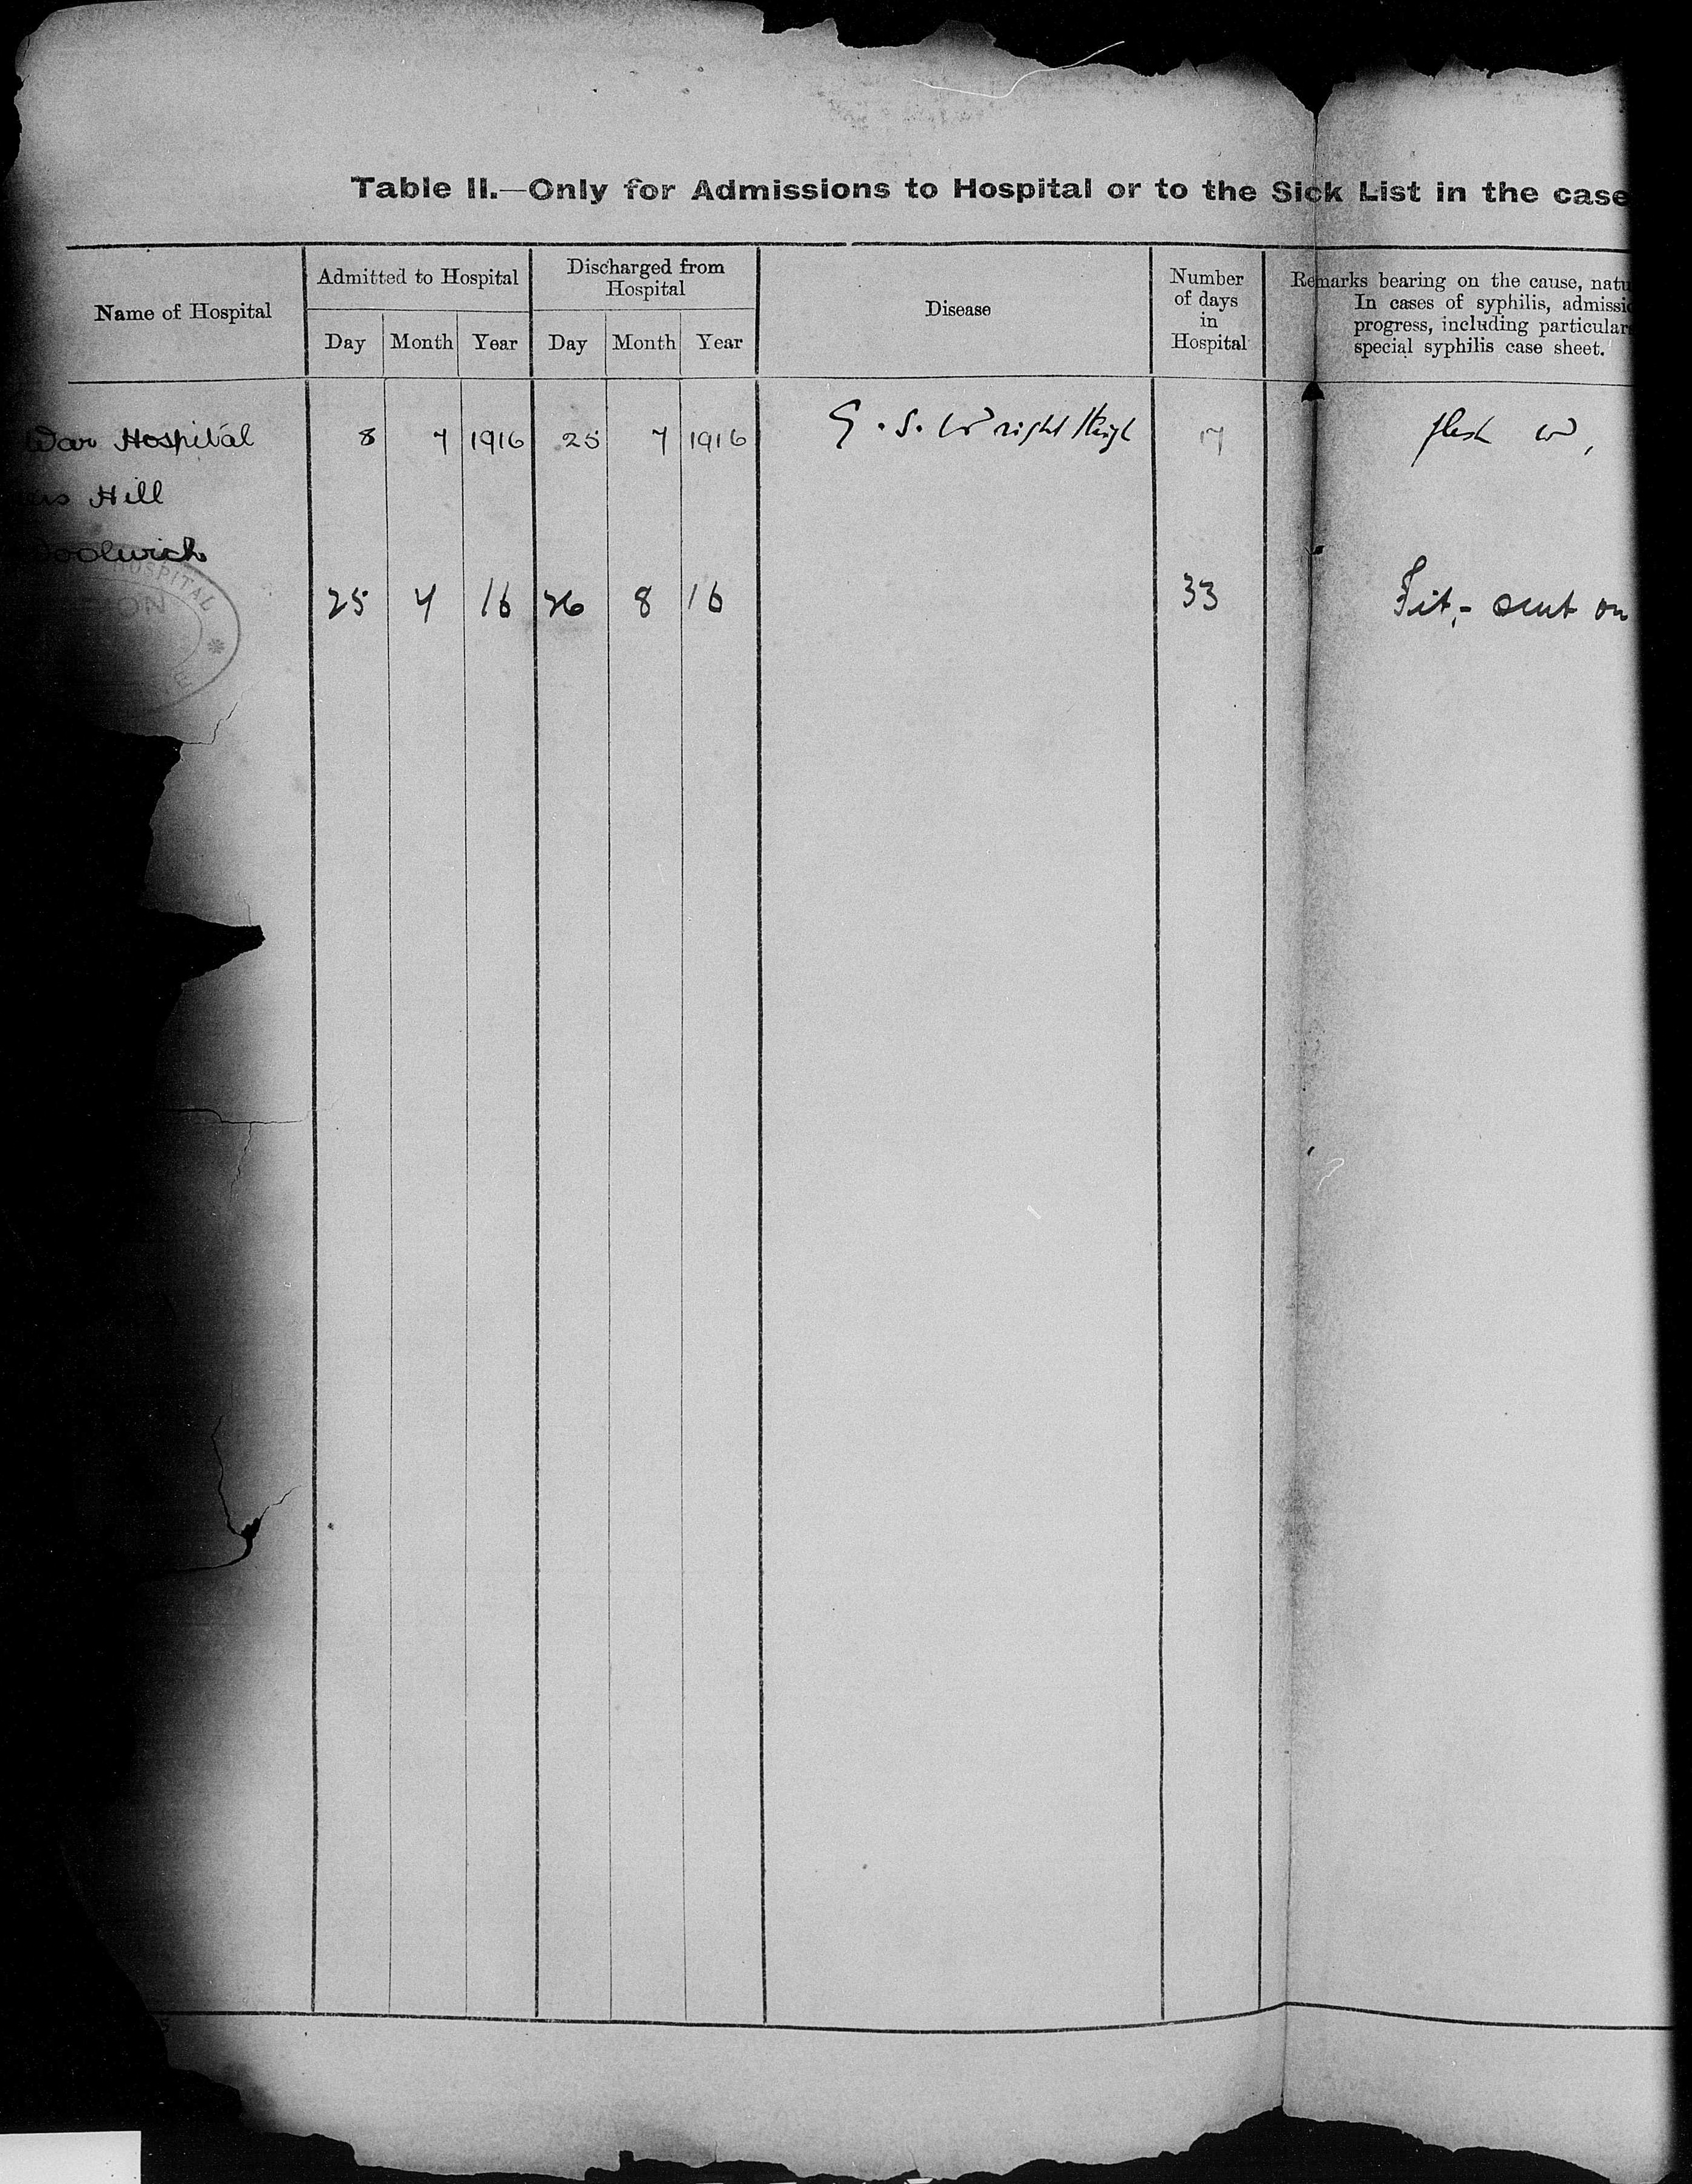 Table II.—Only for Admissions to Hospital or to the Sick List in the case
Name of Hospital
Admitted to Hospital
Day Month Year
Discharged from
Hospital
Day Month Year
Disease
Number
of days
in
Hospital
Remarks bearing on the cause, natu
In cases of syphilis, admissio
progress, including particular
special syphilis case sheet.
War Hospital 8 7 1916 25 7 1916 G. S. W right thigh 17 flesh w,
ers Hill
Woolwich
HOSPITAL
25 7 16 26 8 16 33 Fit,- sent on